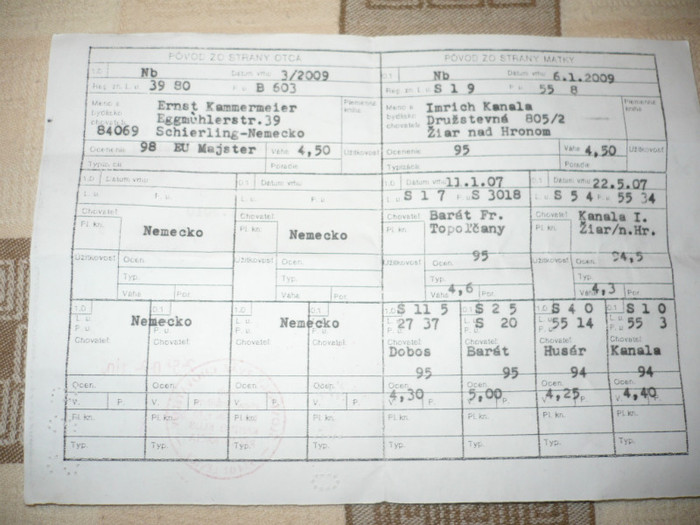 PÔVOD ZO STRANY OTCA
1.0 Nb Dátum vrhu 3/2009
Reg. pt. L. u. 39 80 P. u. B 603
Meno a bydlisko chovateľa
Ernst Kammermeier
Eggmühlerstr.39
84069 Schierling-Nemecko
Plemenná kniha
Ocenenie 98 EU Majster Váha 4,50 Úžitkovosť
Typizácia Poradie
PÔVOD ZO STRANY MATKY
0.1 Nb Dátum vrhu 6.1.2009
Reg. pt. L. u. S 1 9 P. u. 55 8
Meno a bydlisko chovateľa
Imrich Kanala
Družstevná 805/2
Žiar nad Hronom
Plemenná kniha
Ocenenie 95 Váha 4,50 Úžitkovosť
Typizácia Poradie
1.0 Dátum vrhu 0.1 Dátum vrhu 1.0 Dátum vrhu 11.1.07 0.1 Dátum vrhu 22.5.07
L. u. P. u. L. u. P. u. L. u. S 1 7 P. u. S 3018 L. u. S 5 4 P. u. 55 34
Chovateľ Chovateľ Chovateľ Barát Fr. Chovateľ Kanala I.
Pl. kn. Nemecko Pl. kn. Nemecko Pl. kn. Topoľčany Pl. kn. Žiar/n.Hr.
Úžitkovosť Ocen. Úžitkovosť Ocen. Úžitkovosť Ocen. 95 Úžitkovosť Ocen. 94,5
Typ. Typ. Typ. Typ.
Váha Por. Váha Por. Váha 4,6 Por. Váha 4,3 Por.
1.0 0.1 1.0 0.1 1.0 S 11 5 0.1 S 2 5 1.0 S 4 0 0.1 S 1 0
L. u. Nemecko L. u. Nemecko L. u. 27 37 L. u. S 20 L. u. 55 14 L. u. 55 3
P. u. P. u. P. u. P. u. P. u. P. u.
Chovateľ Chovateľ Chovateľ Chovateľ Chovateľ Chovateľ Chovateľ Chovateľ
Dobos Barát Husér Kanala
95 95 94 94
Ocen. Ocen. Ocen. Ocen. Ocen. Ocen. Ocen. Ocen.
V. P. V. P. V. P. V. P. V. 4,30 P. V. 5,00 P. V. 4,25 P. V. 4,40 P.
Pl. kn. Pl. kn. Pl. kn. Pl. kn. Pl. kn. Pl. kn. Pl. kn. Pl. kn.
Typ. Typ. Typ. Typ. Typ. Typ. Typ. Typ.